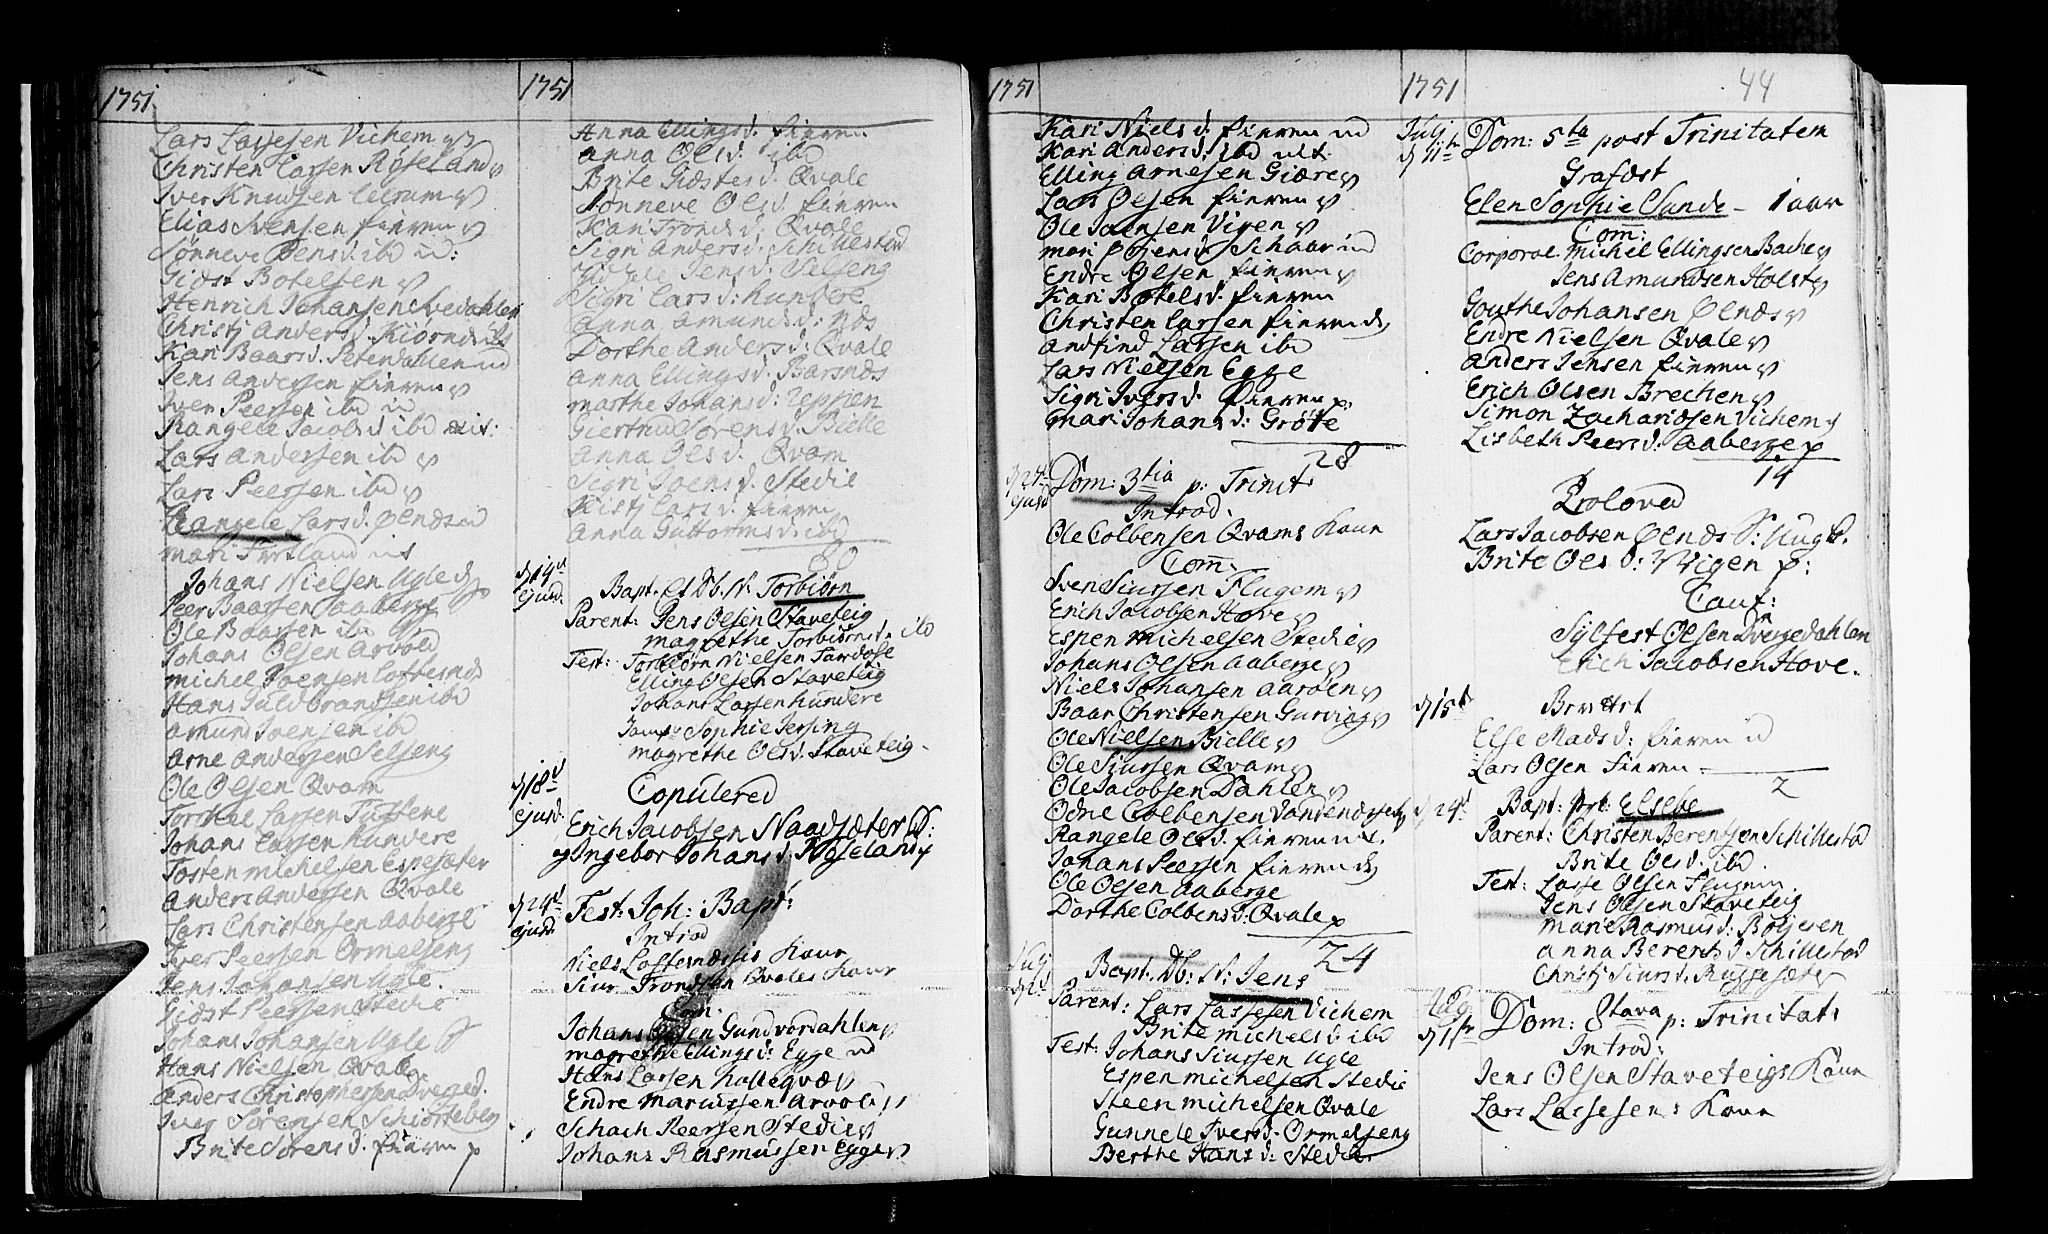 1751
Lars Lassesen Vichem
Christen Larsen Röseland
Iver Knudsen
Elias Svensen fieren
Sönneve Oensd: ibd ud:
Giöst Botelsen
Henrich Johansen Svedahlen
Christj Andersd.
Kari Baarsd: Petersdahlen ud
Jens Andersen fieren
Iver Peersen ibd ud
Rangele Jacobsd ibd
Lars Andersen ibd
Lars Peersen ibd
Rangele Larsd. Ølnæs ud
Mari
Johans Nielsen Ugle
Peer Baarsen Aaberge
Ole Baarsen ibd
Johans Olsen Arvold
Michel Joensen Loftesnæs
Hans Guldbrandsen ibd
Amund Joensen ibd
Arne Andersen Selseng
Ole Olsen Qvam
Larsen Tuftene
Johans Larsen Hundere
Tosten Michelsen Espesæter
Anders Andersen Qvale
Lars Christensen Aaberge
Iver Peersen Ormelseng
Jens Johansen Ugle.
Giöst Peersen Stedie
Johans Johansen Ugle
Hans Nielsen Qvale
Anders Christophersen Dverged.
Iver Sörensen
Brite Sörensd. fieren p
1751
Anna Ellingsd. fieren
Anna Olsd: ibd
Brite Giöstesd. Qvale
Sönneve Olsd. fieren
Kari Trondsd: Qvale
Sigri Andersd. Schillestad
Jensd: Velseng
Sigri Larsd: Hundere
Anna Amundsd: Næs
Dorthe Andersd: Qvale
Anna Ellingsd. Barsnæs
Marthe Johansd: Reppen
Giertrud Sörensd. Bielle
Anna Olsd. Qvam
Sigri Joensd. Stedie
Kistj Larsd. fieren
Anna Guttormsd: ibd
80
d 14de
ejusd.
Bapt. et Db. N. Torbiörn
Parent: Jens Olsen Staveteig
Magrethe Torbiörnsd. ibd
Test: Torbiörn Nielsen Tardøse
Elling Olsen Staveteig
Johans Larsen Hundere
Jomfr Sophie Jersing
Magrethe Olsd. Staveteig.
d 18de
ejusd.
Copulered
Erich Jacobsen Naadsæter S:
og Ingebor Johansd. Röseland p
d 24de
ejusd.
Fest: Joh: Bapt:
Introd
Niels Loftesnæsis Kone
Siur Trondsen Qvales Kone
Com:
Johans Olsen Gundvordahlen
Magrethe Ellingsd: Egge ud
Hans Larsen Holleqvæ
Endre Marcussen Arvold
Schach Peersen Stedie
Johans Rasmussen Egge
1751
Kari Nielsd: fieren ud
Kari Andersd: ibd ult.
Elling Arnesen Giære
Lars Olsen fieren
Ole Joensen Vigen
Mari Schaar ud
Endre Olsen fieren
Kari Botelsd. fieren
Christen Larsen fieren
Andfind Larsen ibd
Lars Nielsen Egge
Sigri Iversd. fieren p.
Mari Johansd: Gröte
28
d 24de
ejusd
Dom: 3tia p: Trinit:
Introd.
Ole Colbensen Qvams Kone
Com:
Sven Siursen Flugem
Erich Jacobsen Hove
Espen Michelsen Stedie
Johans Olsen Aaberge
Niels Johansen Aaröen
Baar Christensen Gurving
Ole Nielsen Bielle
Ole Siursen Qvam
Ole Jacobsen Dahlen
Odne Colbensen
Rangele Olsd. fieren ult.
Johans Peersen fieren
Ole Olsen Aaberge
Dorthe Colbensd: Qvale p
24
Julj
d 2d
Bapt. Db: N: Jens
Parent: Lars Lassesen Vichem
Brite Michelsd: ibd
Test: Johans Siursen Ugle
Espen Michelsen Stedie
Steen Michelsen Qvale
Gunnele Iversd. Ormelseng
Berthe Hansd: Stedie
1751
44
Julj
d 11te
Dom: 5ta post Trinitatem
Grafæst
Elen Sophie Sunde - 1 aar
Com:
Corporal Michel Ellingsen Bache
Jens Amundsen Holst
Gouthe Johansen Ølnæs
Endre Nielsen Qvale
Anders Jensen fieren
Erich Olsen Brechen
Simon Zachariæsen Vichem
Lisbeth Peersd: Aaberge p
14
Troloved
Lars Jacobsen Ølnæs S: Ungk.
Brite Olsd: Wigen p:
Caut:
Sylfest Olsen Dvergedahlen
Erich Jacobsen Hove.
d 15de
Berettet
Else Madsd: fieren ud
Lars Olsen fieren
2
d 24de
Bapt: prt. Elsebe
Parent: Christen Berentsen Schillestad
Brite Olsd. ibd.
Test: Lasse Olsen Flugem.
Jens Olsen Staveteig
Marie Rasmusd: Boljeren
Anna Berentsd Schillestad
Christj Siursd. Ruggesæter
Aug
d 1ste
Dom: 8tava p: Trinitat:
Introd:
Jens Olsen Staveteigs Kone
Lars Lassesens Kone